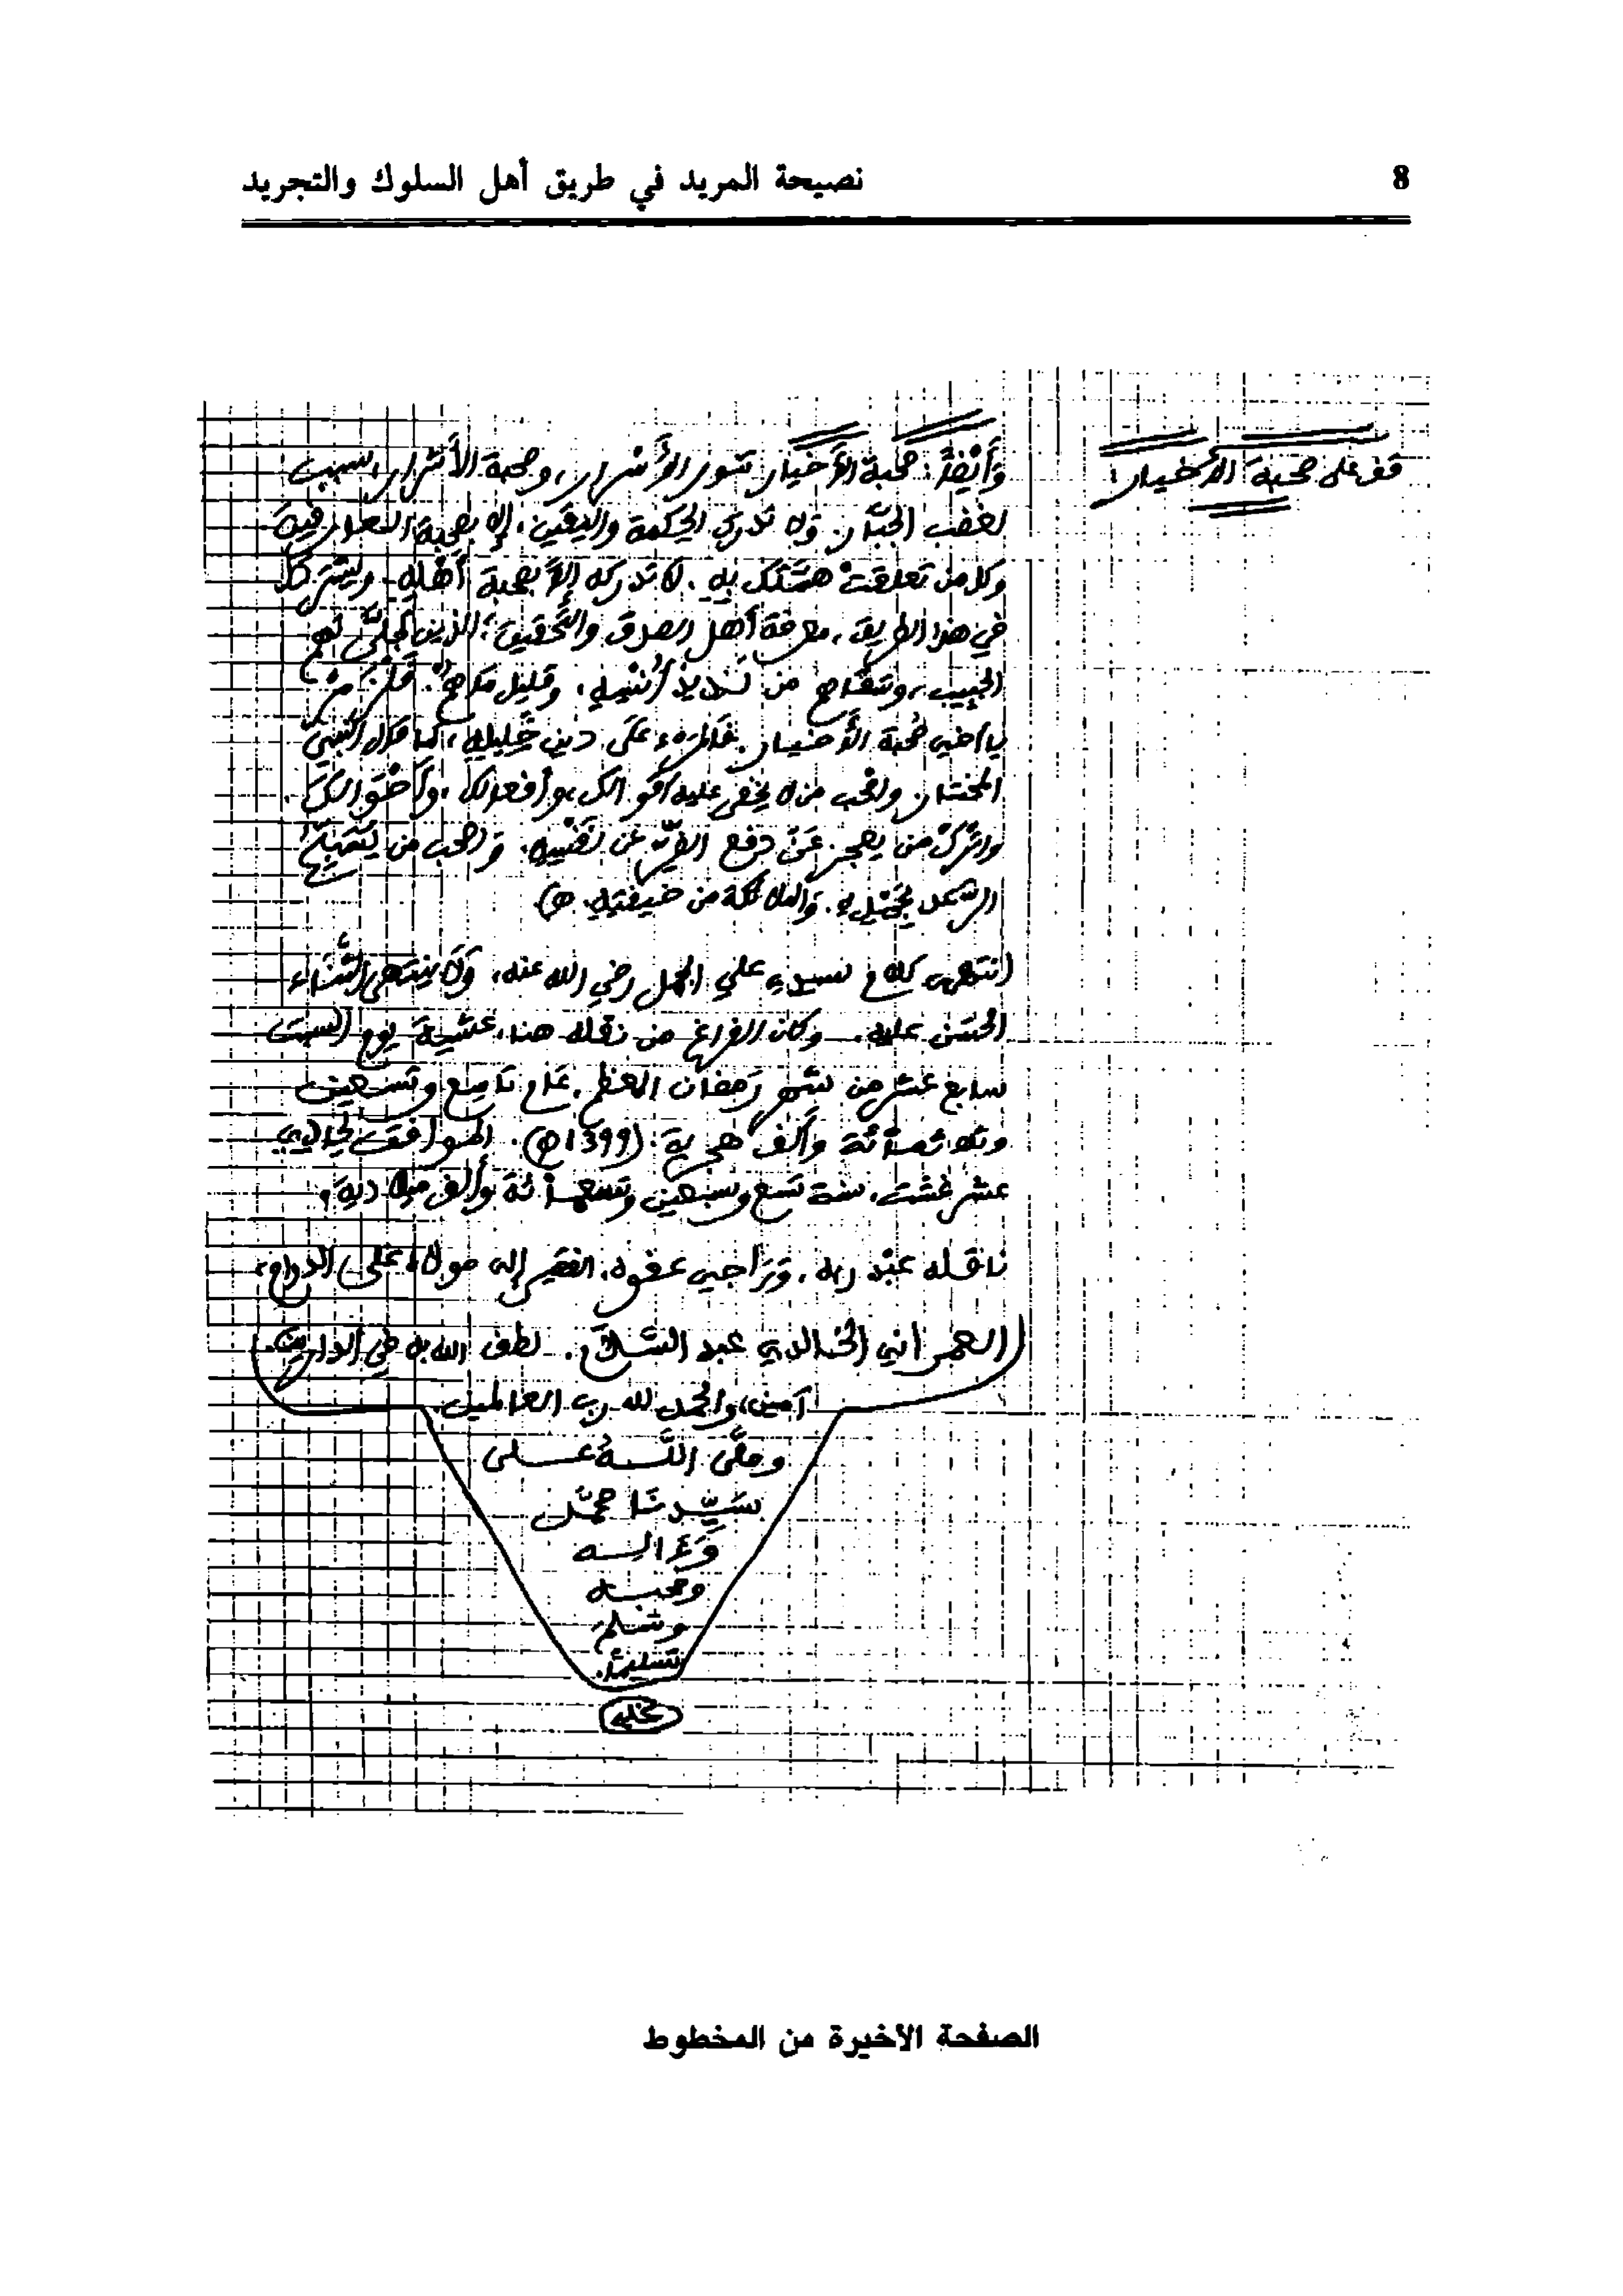 8
نصيحة المريد في طريق أهل السلوك والتجريد
قف على صحبة الأخيار
وأيضًا: صحبة الأخيار تنور الأسرار، وصحبة الأشرار، سبب
لغضب الجبَّار. ولا تدرك الحكمة واليقين، إلا بصحبة العارفين
وكل من تعلقت همتك به. لا تدركه إلاَّ بصحبة أهله.
في هذا الطريق، معرفة أهل الصدق والتحقيق؛ الذين تجلَّى لهم
الحبيب، من. وقليل ما هم.
يا أخي صحبة الأخيار. فالمرء على دين خليله، كما قال النبي
المختار. واصحب من لا يخفى عليه أقوالك، وأفعالك، وأحوالك.
واترك من يعجز عن دفع الضرّ عن نفسه. واصحب من
بخيله. والملائكة من خيفته. هـ)
انتهى كلام سيدي علي الجمل رضي الله عنه، ولا ينتهي الثناء
الحسن عليه. وكان الفراغ من نقله هنا، عشية يوم السبت
سابع عشر من شهر رمضان المعظم، عام تاسع وتسعين
وثلاثمائة وألف هجرية. (1399هـ). الموافق لحادي
عشر غشت، سنة تسع وسبعين وتسعمائة وألف ميلادية،
ناقله عبد ربه، وراجي عفوه، الفقير إلى مولاه على الدوام،
العمراني الخالدي عبد السلام. لطف الله به في الدارين.
آمين، والحمد لله رب العالمين
وصلَّى اللَّه على
سيِّدنا محمّد
وعلى آله
وصحبه
وسلم
تسليمًا.
الصفحة الأخيرة من المخطوط